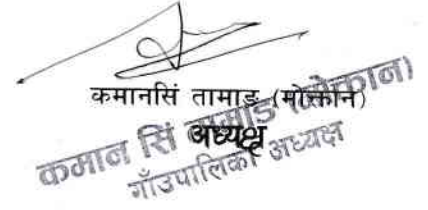 कमानसिं तामाङ (मोक्तान)
अध्यक्ष
कमान सिं तामाङ (मोक्तान)
गाँउपालिका अध्यक्ष